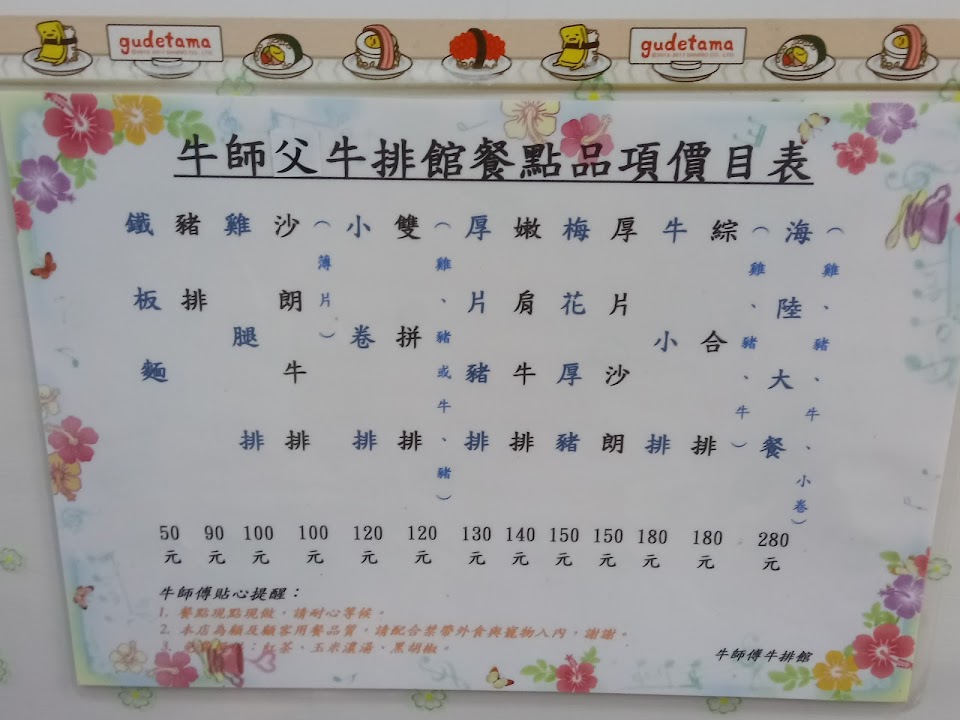 gudetama
gudetama
牛師父牛排館餐點品項價目表
鐵板麵 50元
豬排 90元
雞腿排 100元
沙朗牛排（薄片） 100元
小卷排 120元
雙拼排（雞、豬或牛、豬） 120元
厚片豬排 130元
嫩肩牛排 140元
梅花厚豬 150元
厚片沙朗 150元
牛小排 180元
綜合排（雞、豬、牛） 180元
海陸大餐（雞、豬、牛、小卷） 280元
牛師傅貼心提醒：
1. 餐點現點現做，請耐心等候。
2. 本店為顧及顧客用餐品質，請配合禁帶外食與寵物入內，謝謝。
3. ：紅茶、玉米濃湯、黑胡椒。
牛師傅牛排館